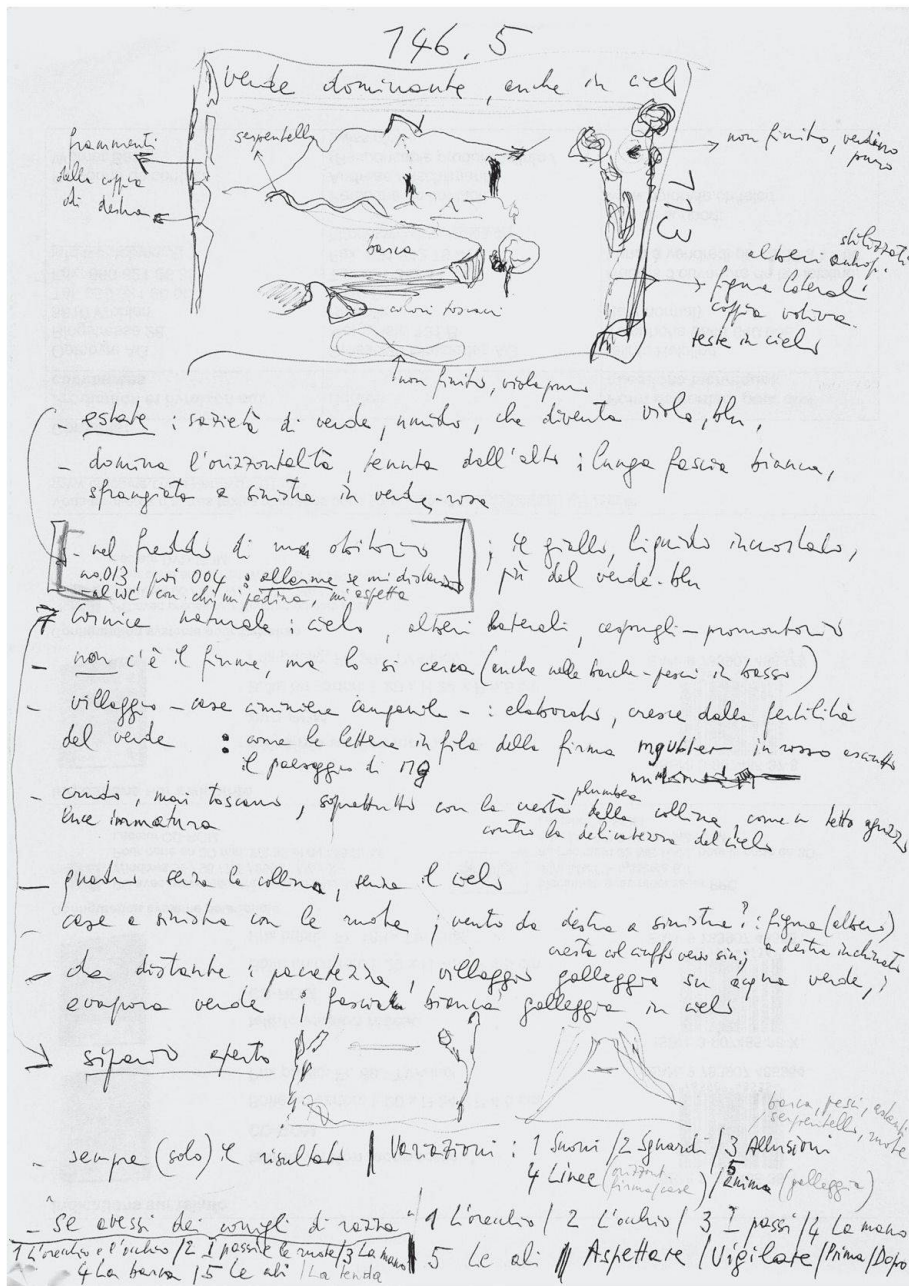 146.5
verde dominante, anche in cielo
serpentello
frammenti
della coppia
di destra
non finito, verdino
puro
73
barca
colori toscani
stilizzati
alberi antrop.
figure laterali
coppia votiva
teste in cielo
non finito, viola puro
- estate : sazietà di verde, umido, che diventa viola, blu,
- domina l'orizzontalità, tenuta dall'alto ; lunga fascia bianca,
sfrangiata a sinistra in verde-rosa
- nel freddo di un obitorio
no. 013, poi 004 : allarme se mi distanzio
al WC con chi mi pedina, mi aspetta
; il giallo, liquido incrostato,
più del verde-blu
Cornice naturale : cielo, alberi laterali, cespugli-promontorio
- non c'è il fiume, ma lo si cerca (anche nelle barche-pesci in basso)
- villaggio - case ciminiere campanile - : elaborato, cresce dalla fertilità
del verde : come le lettere in fila della firma mgubler in rosso asciutto
il paesaggio di MG
- crudo, mai toscano, soprattutto con la cresta plumbea della collina, come un tetto aguzzo
luce immatura
contro la delicatezza del cielo
- quadro senza la collina, senza il cielo
- case a sinistra con le ruote ; vento da destra a sinistra? : figura (albero)
a destra inclinata
cresta col ciuffo verso sin;
- da distante : pacatezza, villaggio galleggia su acqua verde,
evapora verde ; fascia bianca galleggia in cielo
→ sipario aperto
barca, pesci,
serpentello, ruote
- sempre (solo) il risultato | Variazioni : 1 Suoni / 2 Sguardi / 3 Allusioni
4 Linee (orizzont. firma/case) / 5 anima (galleggia)
- "Se avessi dei conigli di razza" 1 L'orecchio / 2 L'occhio / 3 I passi / 4 La mano
1 L'orecchio e l'occhio / 2 I passi e le ruote / 3 La mano | 5 Le ali || Aspettare / Vigilare / Prima / Dopo
4 La barca / 5 Le ali / La tenda